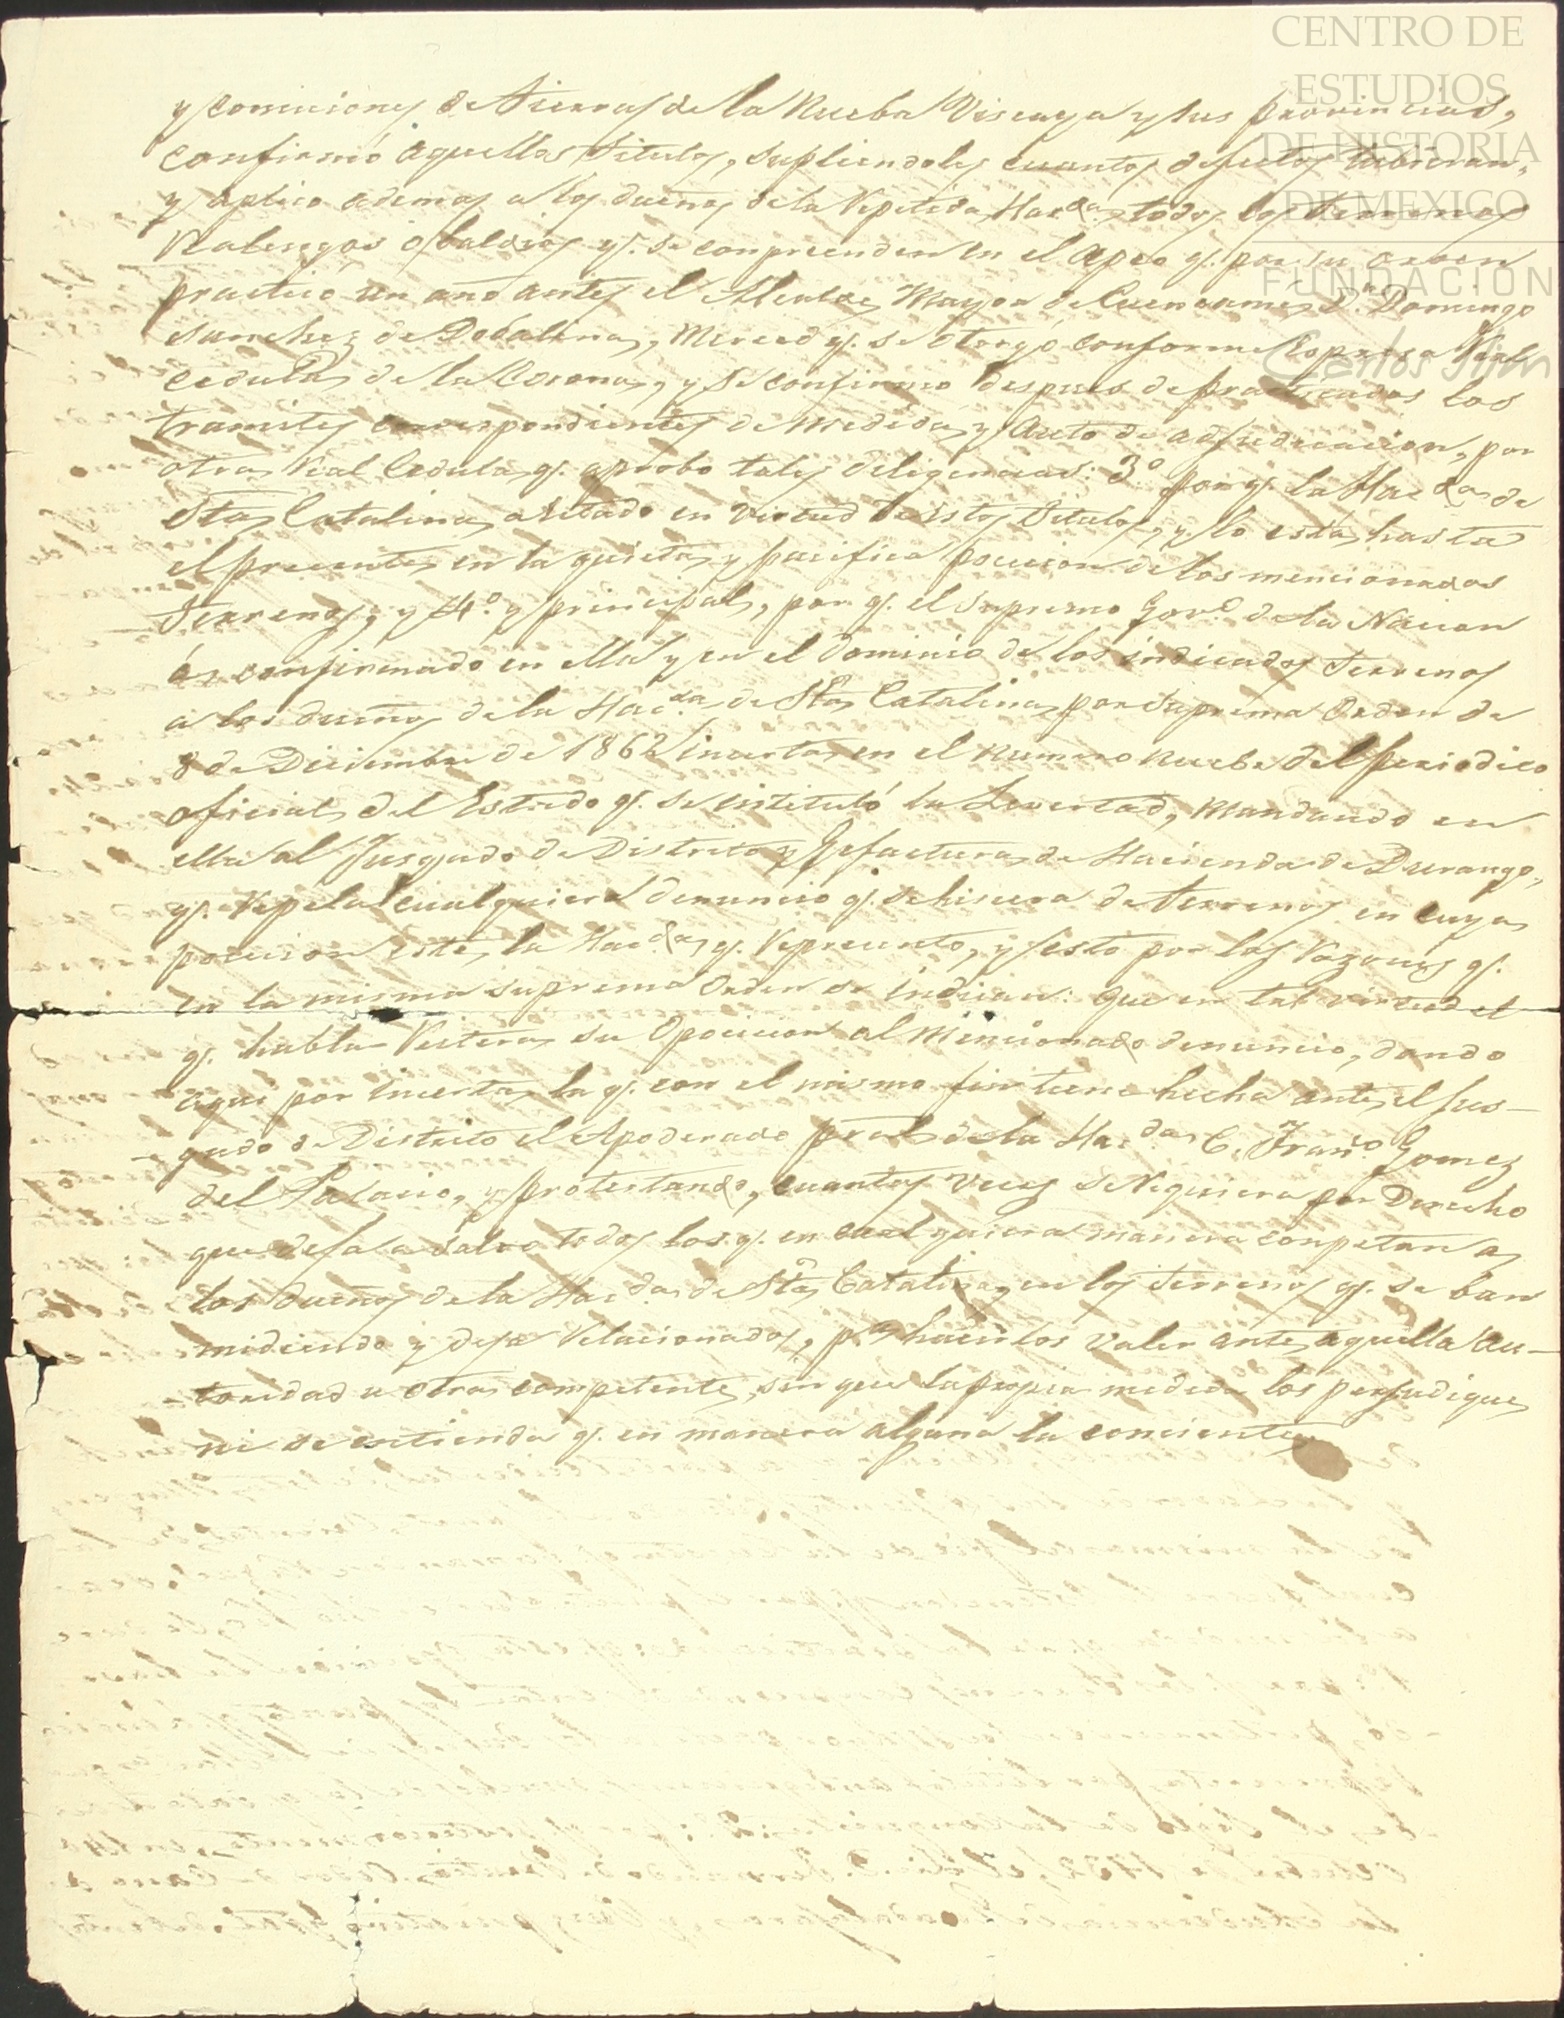 CENTRO DE
ESTUDIOS
DE HISTORIA
DE MEXICO
FUNDACIÓN
Carlos Slim
y comiciones de tierras de la Nueba Viscaya y sus provincias,
confirmó aquellos titulos, supliendoles cuantos defectos tubieran,
y aplico ademas a los dueños de la repetida Hacda. todos los terrenos
realengos o baldios q. se conprenden en el apeo q. por su orden
practicó un año antes el Alcalde Mayor de Cuencame Dn. Domingo
Sanchez de Dobalina, Merced q. se otorgó conforme Espresa Real
Cedula de la Corona, y se confirmo despues de practicados los
tramites correspondientes de medida y Auto de adjudicacion, por
otra Real Cedula q. aprobo tales deligencias. 3o. porq. la Hacda. de
Sta. Catalina a estado en virtud de estos titulos, y lo está hasta
el precente en la quieta y pacifica pocecion de los mencionados
terrenos, y 4o. y principal, por q. el Supremo Govo. de la Nacion
á confirmado en ella y en el dominio de los indicados terrenos
a los dueños de la Hacda. de Sta. Catalina por Suprema Orden de
8 de Diciembre de 1862 incerta en el numero nuebe del periodico
oficial del Estado q. se intituló la Livertad, mandando en
ella al Jusgado de Distrito y Gefactura de Hacienda de Durango,
q. repela cualquiera denuncio q. se hiciera de terrenos en cuya
pocecion esté la Hacda. q. reprecento, y esto por las razones q.
en la misma suprema Orden se indican: Que en tal virtud el
q. habla reitera su Oposicion al mencionado denuncio, dando
aqui por incerta la q. con el mismo fin tiene hecha ante el jus-
gado de Distrito el Apoderado pral. de la Hacda. C. Franco. Gomez
del Palacio, y protestando, cuantas veces se requiera por Derecho
que deja a salvo todos los q. en cualquiera manera conpetan a
los dueños de la Hacda. de Sta. Catalina en los terrenos q. se ban
midiendo y deja relacionados, pa. hacerlos valer ante aquella au-
toridad u otra competente, sin que la propia medida los perjudique
ni se entienda q. en manera alguna la conciente